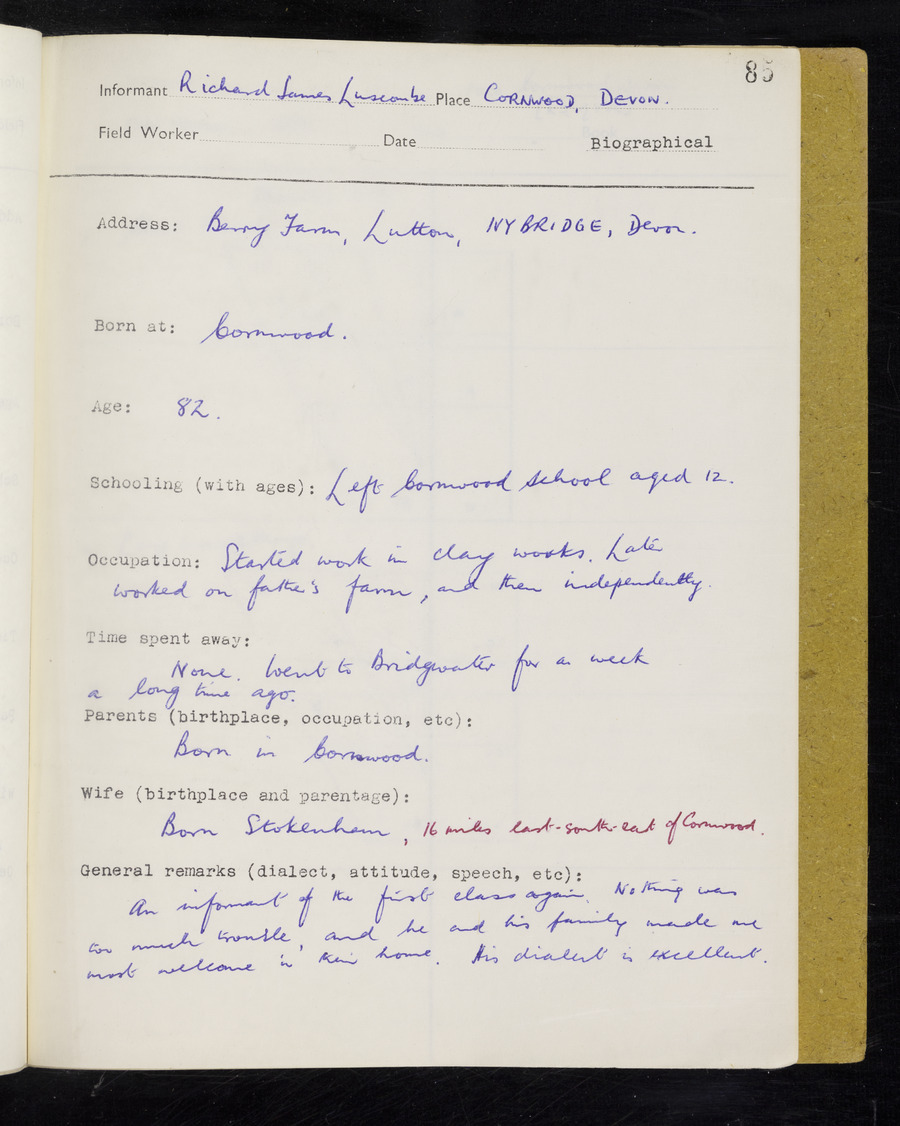 85
Informant Richard James Luscombe Place CORNWOOD, DEVON.
Field Worker Date Biographical
Address: Berry Farm, Lutton, IVYBRIDGE, Devon.
Born at: Cornwood.
Age: 82.
Schooling (with ages): Left Cornwood School aged 12.
Occupation: Started work in clay works. Later
worked on father's farm, and then independently.
Time spent away:
None. Went to Bridgwater for a week
a long time ago.
Parents (birthplace, occupation, etc):
Born in Cornwood.
Wife (birthplace and parentage):
Born Stokenham, 16 miles east-south-east of Cornwood.
General remarks (dialect, attitude, speech, etc):
An informant of the first class again. Nothing was
too much trouble, and he and his family made me
most welcome in their home. His dialect is excellent.